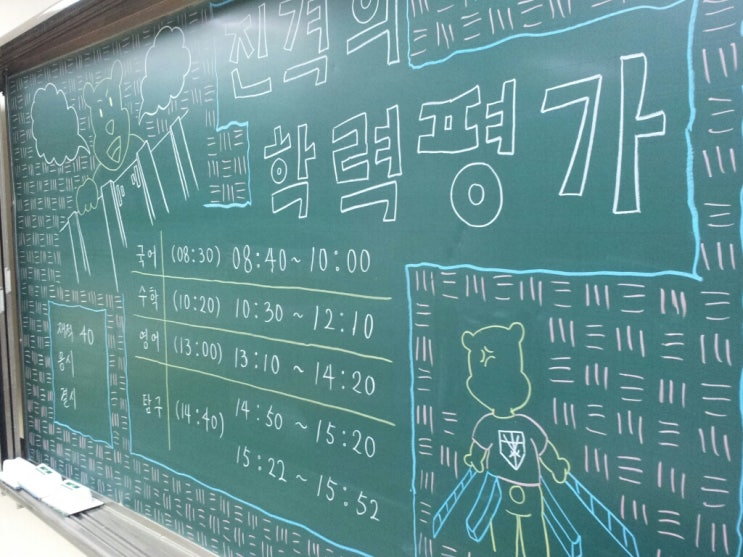 진격의
학력평가
국어 (08:30) 08:40~10:00
수학 (10:20) 10:30~12:10
영어 (13:00) 13:10~14:20
탐구 (14:40) 14:50~15:20
15:22~15:52
재적 40
응시
결시